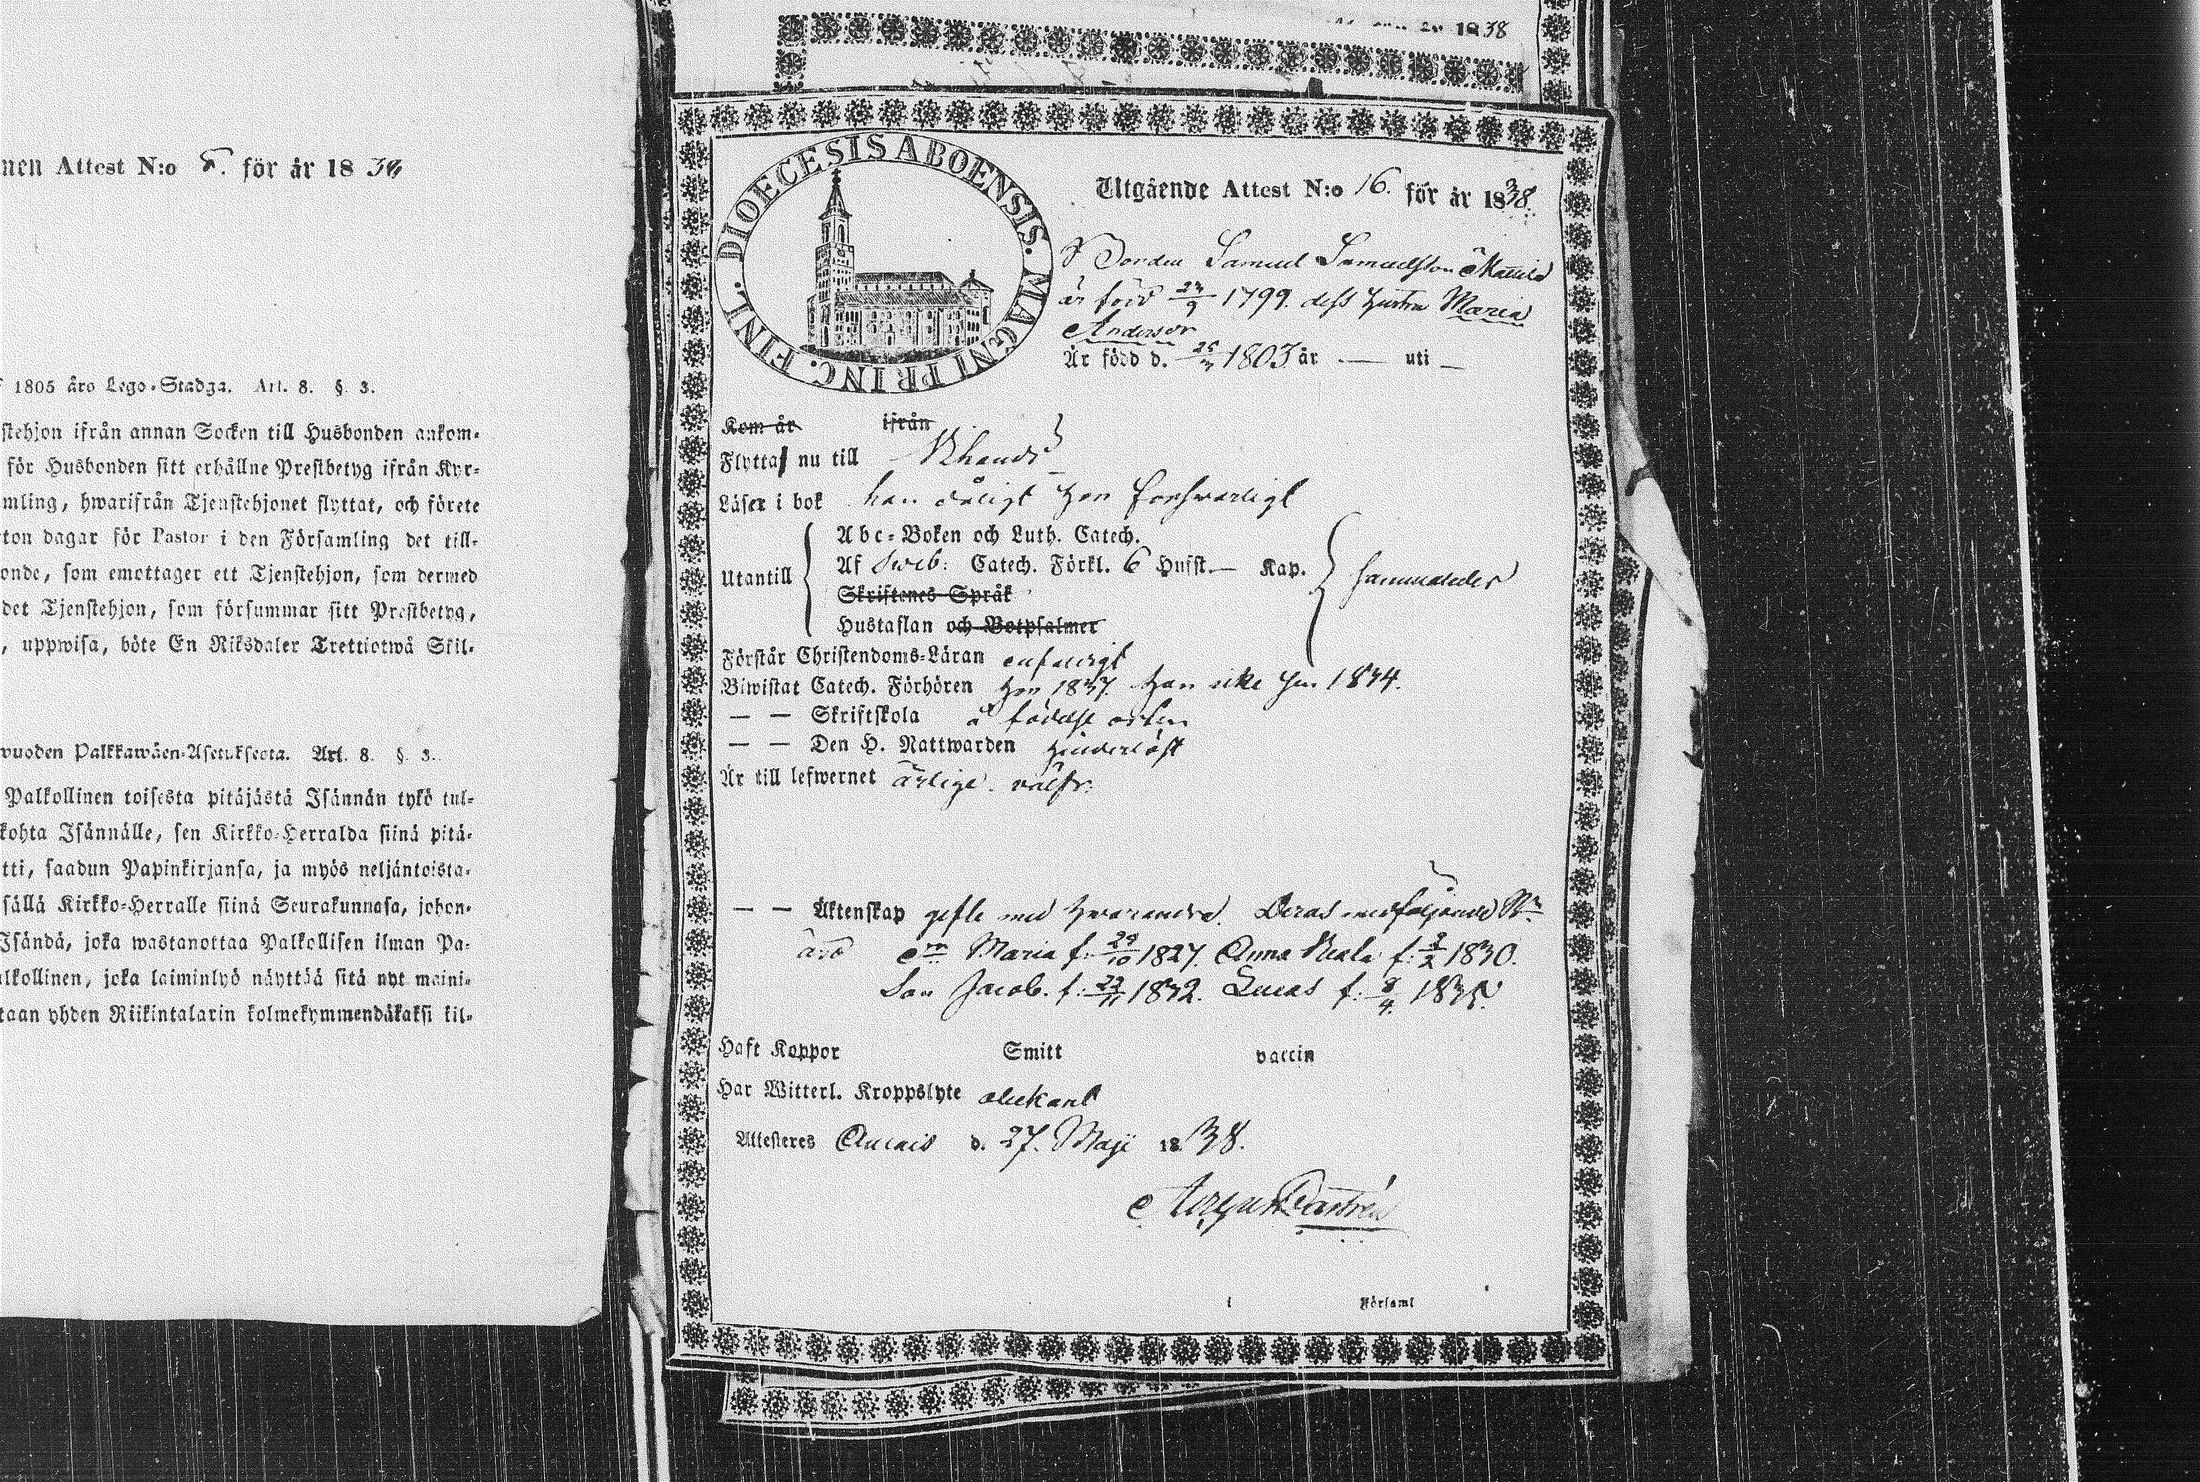 nen Attest N:o för år 18 38
1805 års Lego-Stadga. Art. 8. §. 3.
stehjon ifrån annan Socken till Husbonden ankom-
för Husbonden sitt erhållne Prestbetyg ifrån Kyr-
mling, hwarifrån Tjenstehjonet flyttat, och förete
ton dagar för Pastor i den Församling det till-
onde, som emottager ett Tjenstehjon, som dermed
det Tjenstehjon, som försummar sitt Prestbetyg,
, uppwisa, böte En Riksdaler Trettiotwå Skil-
wuoden Palkkawäen-Asetuksesta. Art. 8. §. 3.
Palkollinen toisesta pitäjästä Isännän tykö tul-
kohta Isännälle, sen Kirkko-Herralda siinä pitä-
tti, saadun Papinkirjansa, ja myös neljäntoista-
sällä Kirkko-Herralle siinä Seurakunnasa, johon-
Isändä, joka wastanottaa Palkollisen ilman Pa-
alkollinen, joka laiminlyö näyttää sitä nyt maini-
taan yhden Riikintalarin kolmekymmendäkaksi kil-
1838
DIOECESIS ABOENSIS. MAGNI PRINC. FINL.
Utgående Attest N:o 16. för år 1838.
Bonden Samuel Samuelsson Mattila
är född 1799. dess hustru Maria
Andersdr
Är född d. 1803 år — uti —
Kom år ifrån
Flytta nu till
Läser i bok han dåligt hon forswarligt
Abc-Boken och Luth. Catech.
Utantill
Af Sveb: Catech. Förkl. 6 Hufst. — Kap.
Skriftenes Språk
Hustaflan och Botpsalmer
Förstår Christendoms-Läran enfaldigt
Biwistat Catech. Förhören hon 1837. han icke sen 1834.
— — Skriftskola å födelse orten
— — Den H. Nattwarden hinderlöst
Är till lefwernet ärlige. välfr:
— — Äktenskap gifte med hvarandra. Deras medföljande
äro Maria f: 29/10 1827. Anna f: 2/2 1830.
Son Jacob. f: 1832. Lucas f: 8/4 1835
Haft Koppor Smitt vaccin
Har Witterl. Kroppslyte obekant
Attesteres d. 27. Maji 1838.
Castrén
i Församl